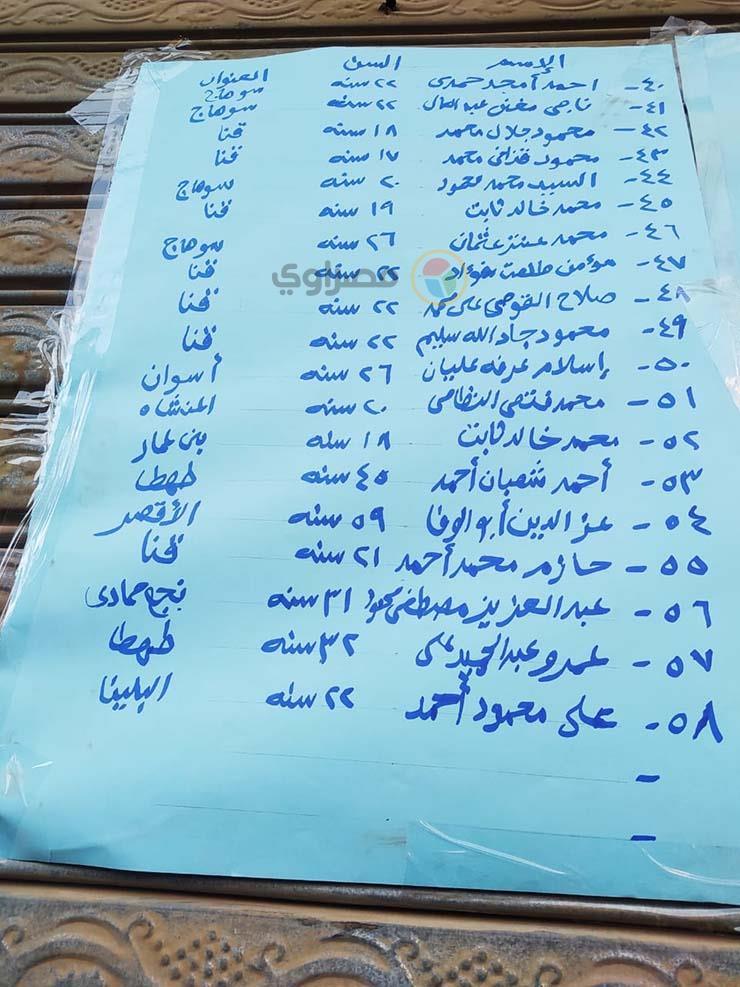 الإسم السن العنوان
٤٠- احمد أمجد حمدى ٢٢ سنه سوهاج
٤١- ناجى عبدالعال ٢٢ سنه سوهاج
٤٢- محمود جلال محمد ١٨ سنه قنا
٤٣- محمود محمد ١٧ سنه قنا
٤٤- السيد محمد محمود ٢٠ سنه سوهاج
٤٥- محمد خالد ثابت ١٩ سنه قنا
٤٦- محمد عنتر عثمان ٢٦ سنه سوهاج
٤٧- مؤمن طلعت فؤاد ٢٢ سنه قنا
مصراوي
٤٨- صلاح على محمد ٢٢ سنه قنا
٤٩- محمود جاد الله سليم ٢٢ سنه قنا
٥٠- إسلام عرفه عليان ٢٦ سنه أسوان
٥١- محمد فتحى النظامى ٢٠ سنه المنشاه
٥٢- محمد خالد ثابت ١٨ سنه بنى عمار
٥٣- أحمد شعبان أحمد ٤٥ سنه طهطا
٥٤- عز الدين أبو الوفا ٥٩ سنه الأقصر
٥٥- حازم محمد أحمد ٢١ سنه قنا
٥٦- عبد العزيز مصطفى محمود ٣١ سنه نجع حمادى
٥٧- عمرو عبد الحميد على ٣٢ سنه طهطا
٥٨- على محمود أحمد ٢٢ سنه البلينا
-
-